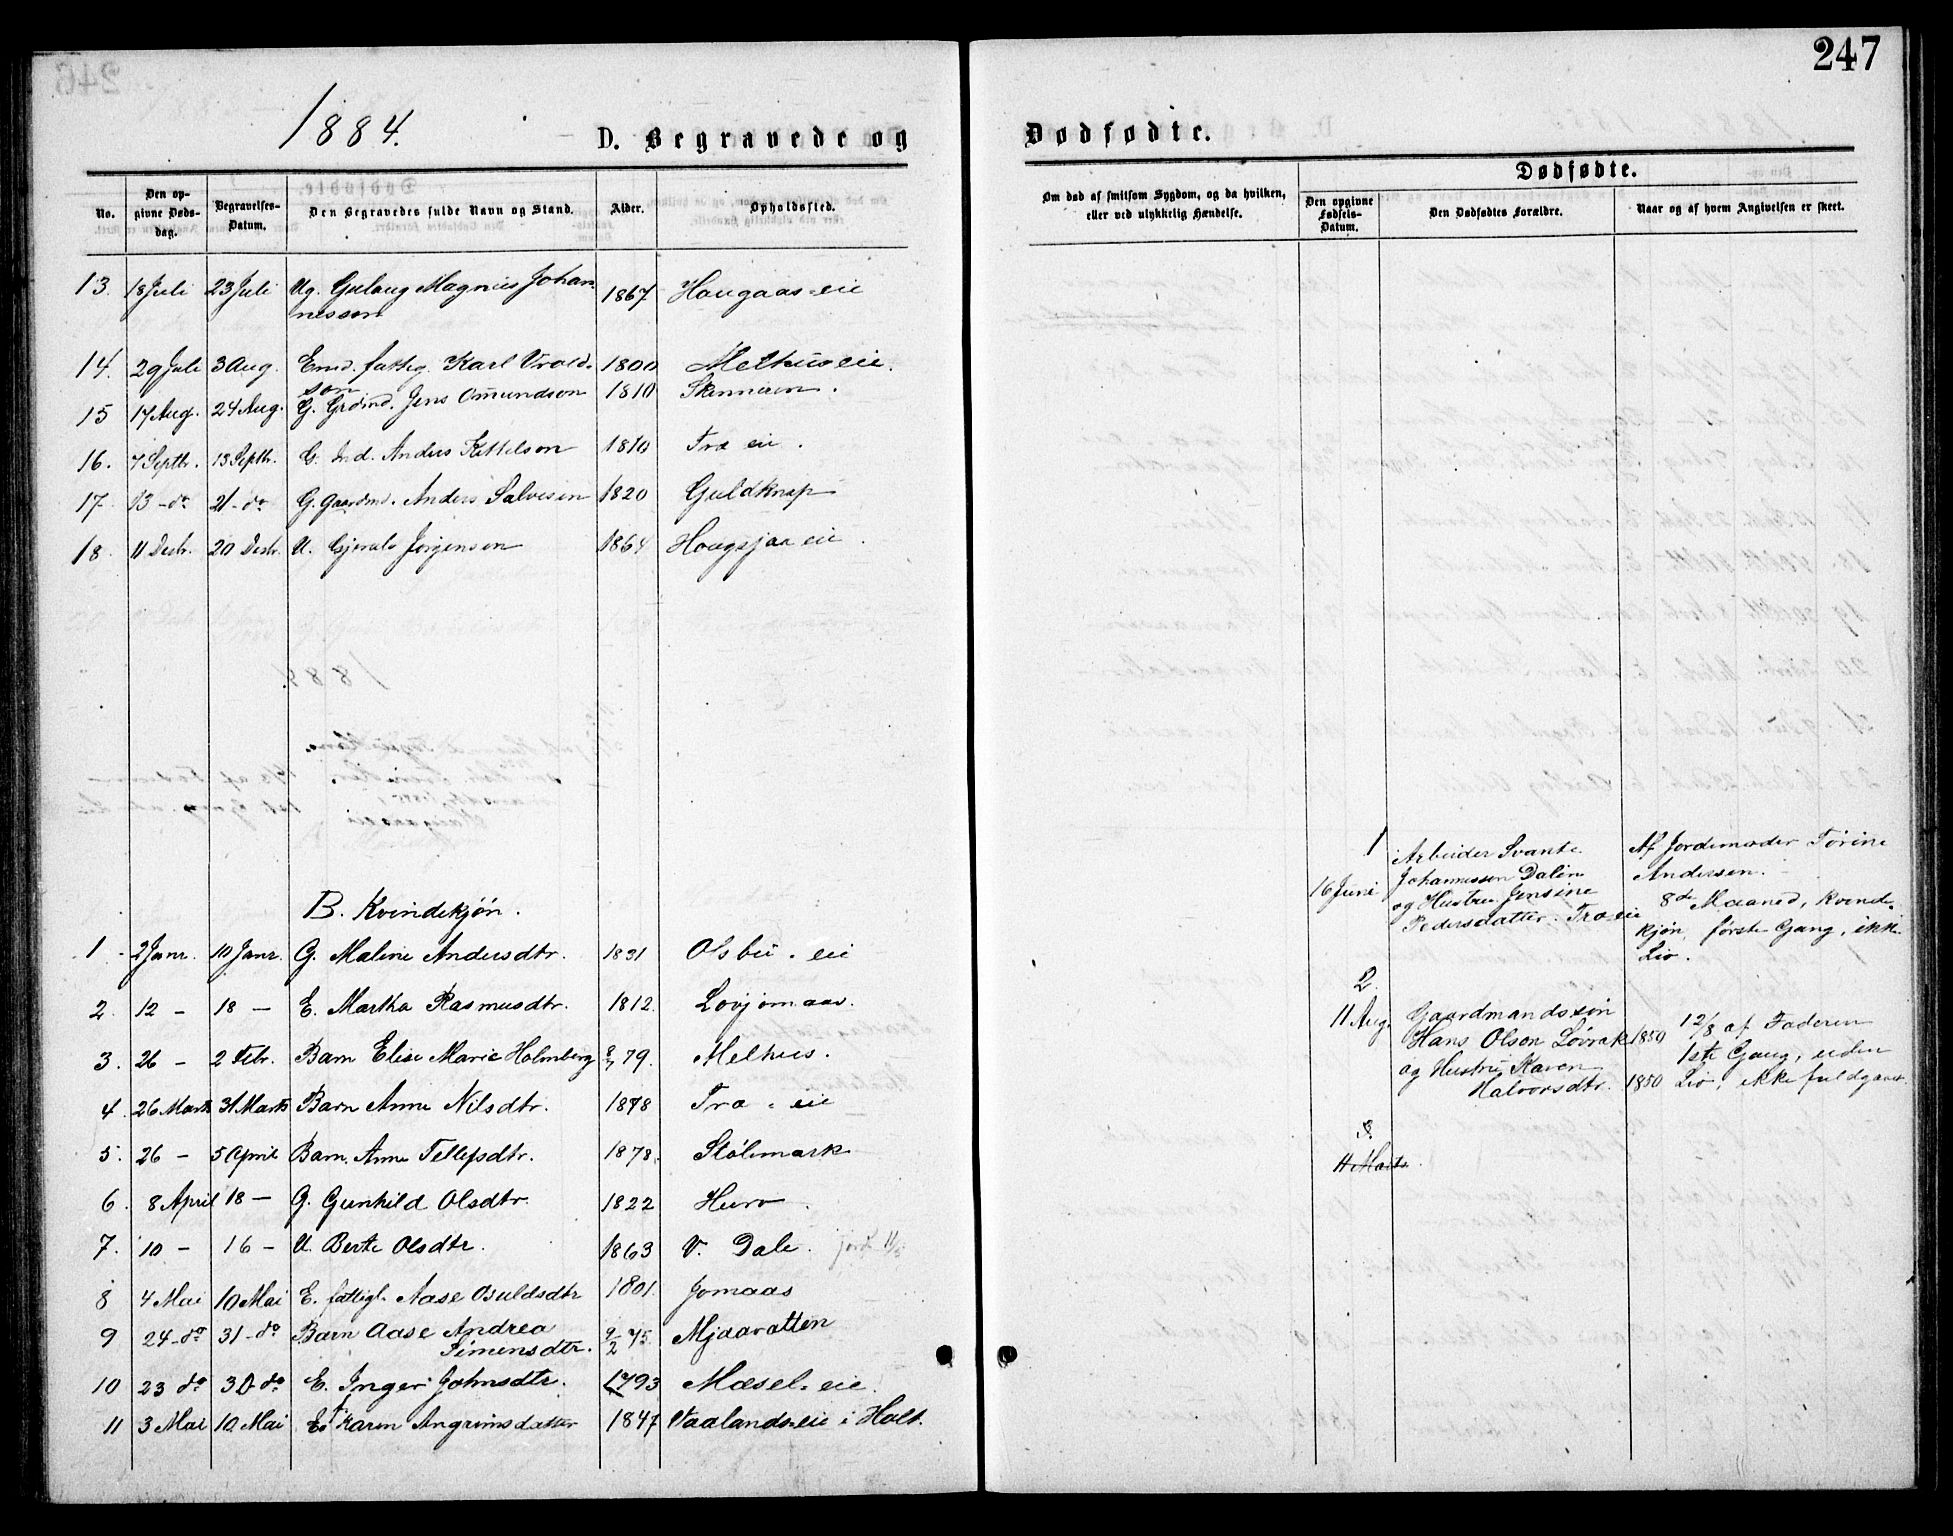 247
1884.
D. Begravede og
Dødfødte.
No.
Den opgivne Dødsdag.
Begravelses-Datum.
Den Begravedes fulde Navn og Stand.
Alder.
Opholdssted.
Om død af smitsom Sygdom, og da hvilken,
eller ved ulykkelig Hændelse.
Dødfødte.
Den opgivne Fødsels-Datum.
Den Dødfødtes Forældre.
Naar og af hvem Angivelsen er skeet.
13. 18 Juli 23 Juli Ug. Gulaug Magnus Johan-
nesson 1867 Haugaas-eie
14. 29 Juli 3 Aug. End. fattig. Karl Vrold-
son 1800 Melhus eie.
15 17 Aug. 24 Aug. G. Grdmd. Jens Omundson 1810
16. 7 Septbr. 13 Septbr. G. Ind. Anders Kittelson 1810 Træ eie.
17. 13 - do 21 - do G. Gaardmd. Anders Salvesen 1820 Guldknap
18. 11 Decbr. 20 Decbr. U. Gjerulv Jørgensen 1864 Hougsjaa eie.
B. Kvindekjøn.
1 2 Janr. 10 Janr. G. Maline Andersdtr. 1831 Olsbu - eie
2. 12 - 18 - E. Martha Rasmusdtr. 1812 Lovjomaas.
3. 26 - 2 Febr. Barn Elise Marie Holmberg 79. Melhus.
4. 26 Marts 31 Marts Barn Anne Nilsdtr. 1878 Træ - eie
5. 26 - 5 April Barn. Anne Tellefsdtr. 1878. Stølemark
6. 8 April 18 - G. Gunhild Olsdtr. 1822 Huro
7. 10 - 16 - U. Berte Olsdtr. 1863 V. Dale.
8 4 Mai 10 Mai E. fattigl. Aase Osuldsdtr 1801. Jomaas
9 24 - do 31 - do Barn Aase Andrea
Simensdtr. 9/2 75. Mjaavatten
10 23 do 30 do E. Inger Johnsdtr. 1793 Mæsel-eie.
11 3 Mai 10. Mai E. Karen Angrimsdatter 1847 Vaalandseie i Holt.
1
16 Juni
Arbeider Svante
Johannessen Dalin
og Hustru Jensine
Pedersdatter. Træ eie
Af Jordemoder Tørine
Andersen.
8de Maaned, Kvinde-
kjøn, første Gang, ikke
Liv.
2.
11 Aug.
Gaardmandssøn
Hans Olson Løvrak 1850
og Hustru Karen
Halvorsdtr. 1850
12/8 af Faderen
1ste Gang, uden
Liv, ikke fuldgaaet.
3.
11 Marts.